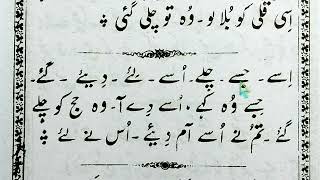 اِسی قُلی کو بُلا لو۔ وُہ تو چلی گئی ؞
اِسے۔ جِسے۔ چلے۔ اُسے۔ لئے۔ دِیئے۔ گئے۔
جِسے وُہ کہے، اُسے دے آ۔ وہ حج کو چلے
گئے۔ تُم نے اُسے آم دیئے۔ اُس نے لئے ؞